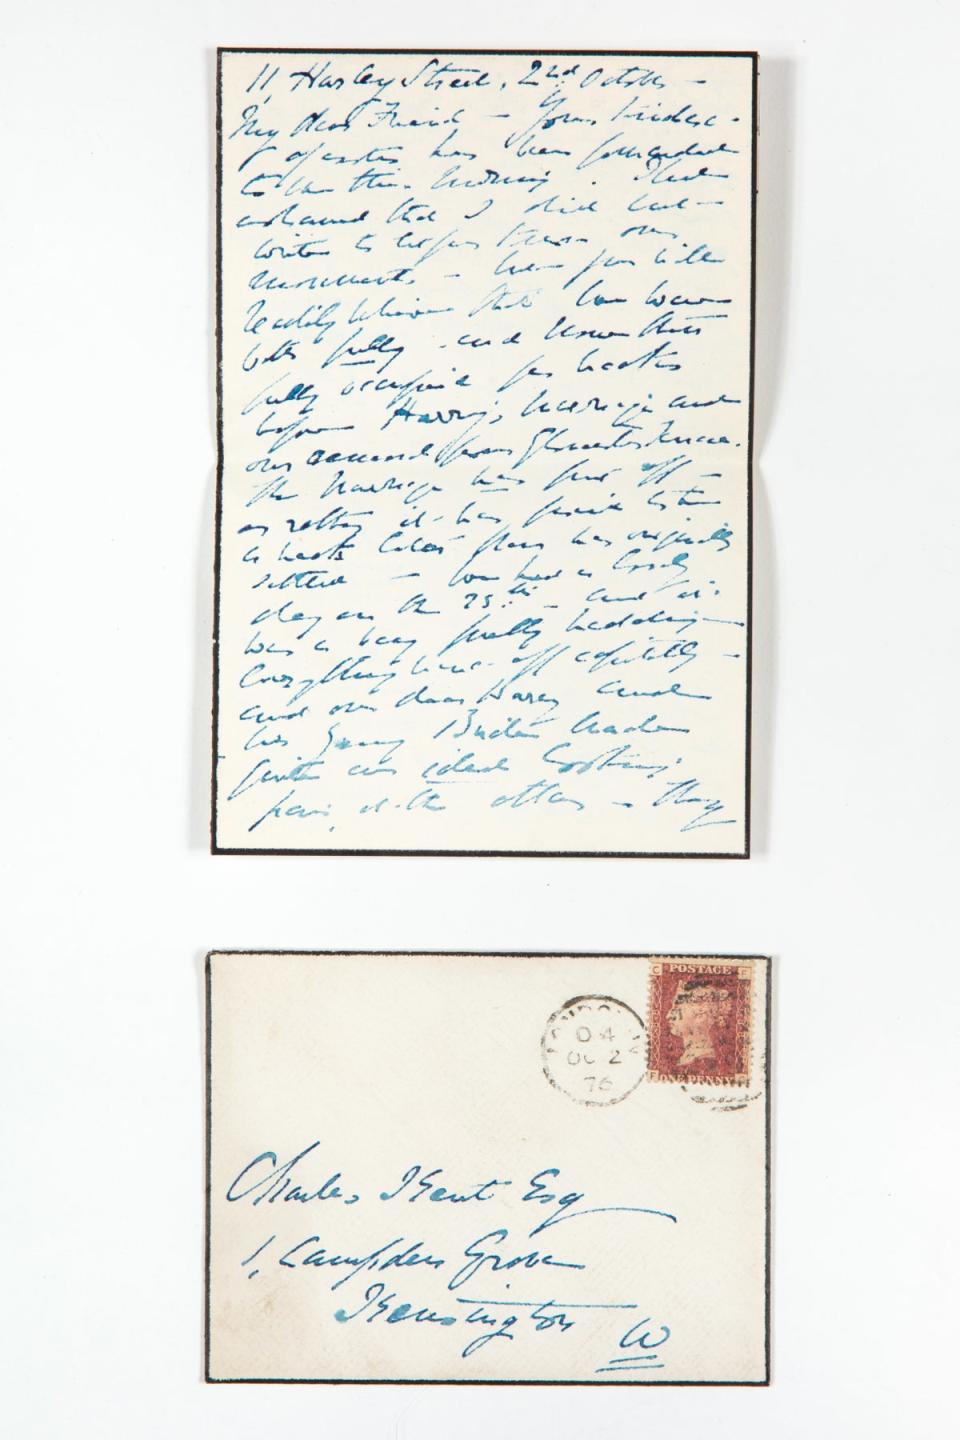 11, Harley Street, 2nd October –
My dear Friend – Yours kindest
of notes has been forwarded
to me this morning. I feel
ashamed that I did not
write to let you know our
movements – but you will
readily believe that we were
both fully and more than
fully occupied for weeks
before Harry's marriage and
our removal from Gloucester Terrace.
The marriage was put off –
as rather it was fixed later
a week later than was originally
settled – We had a lovely
day on the 25th – and it
was a very pretty wedding –
Everything went off capitally –
and our dear Harry and
his young Bride made
quite an ideal looking
pair, at the altar – They
POSTAGE
ONE PENNY
LONDON W
D4
OC 2
76
Charles Kent Esq
1, Campden Grove
Kensington
W